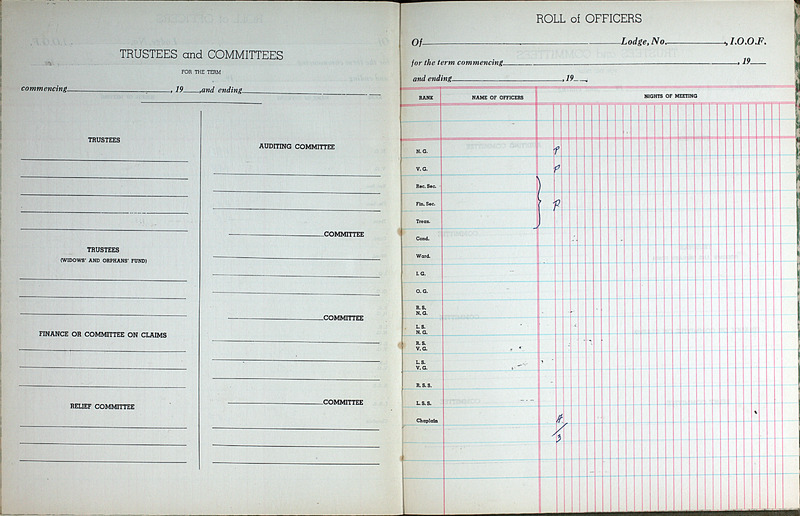 TRUSTEES and COMMITTEES
FOR THE TERM
commencing, 19 ,and ending
TRUSTEES
TRUSTEES
(WIDOWS' AND ORPHANS' FUND)
FINANCE OR COMMITTEE ON CLAIMS
RELIEF COMMITTEE
AUDITING COMMITTEE
COMMITTEE
COMMITTEE
COMMITTEE
ROLL of OFFICERS
Of Lodge, No. , I.O.O.F.
for the term commencing , 19
and ending , 19 .
RANK NAME OF OFFICERS NIGHTS OF MEETING
N. G. P
V. G. P
Rec. Sec.
Fin. Sec. P
Treas.
Cond.
Ward.
I. G.
O. G.
R. S.
N. G.
L. S.
N. G.
R. S.
V. G.
L. S.
V. G.
R. S. S.
L. S. S.
Chaplain
3